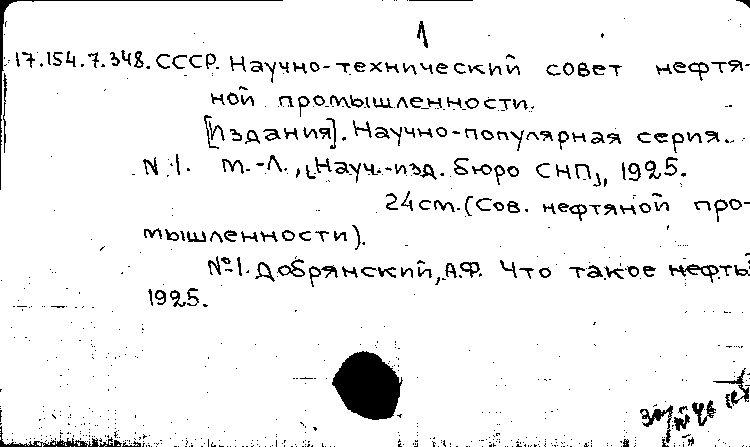 1
17.154.7.348. СССР. Научно-технический совет нефтя-
ной промышленности.
[Издания]. Научно-популярная серия.
N 1. М.-Л., [Науч.-изд. бюро СНП], 1925.
24см. (Сов. нефтяной про-
мышленности).
№1. Добрянский, А.Ф. Что такое нефть?
1925.